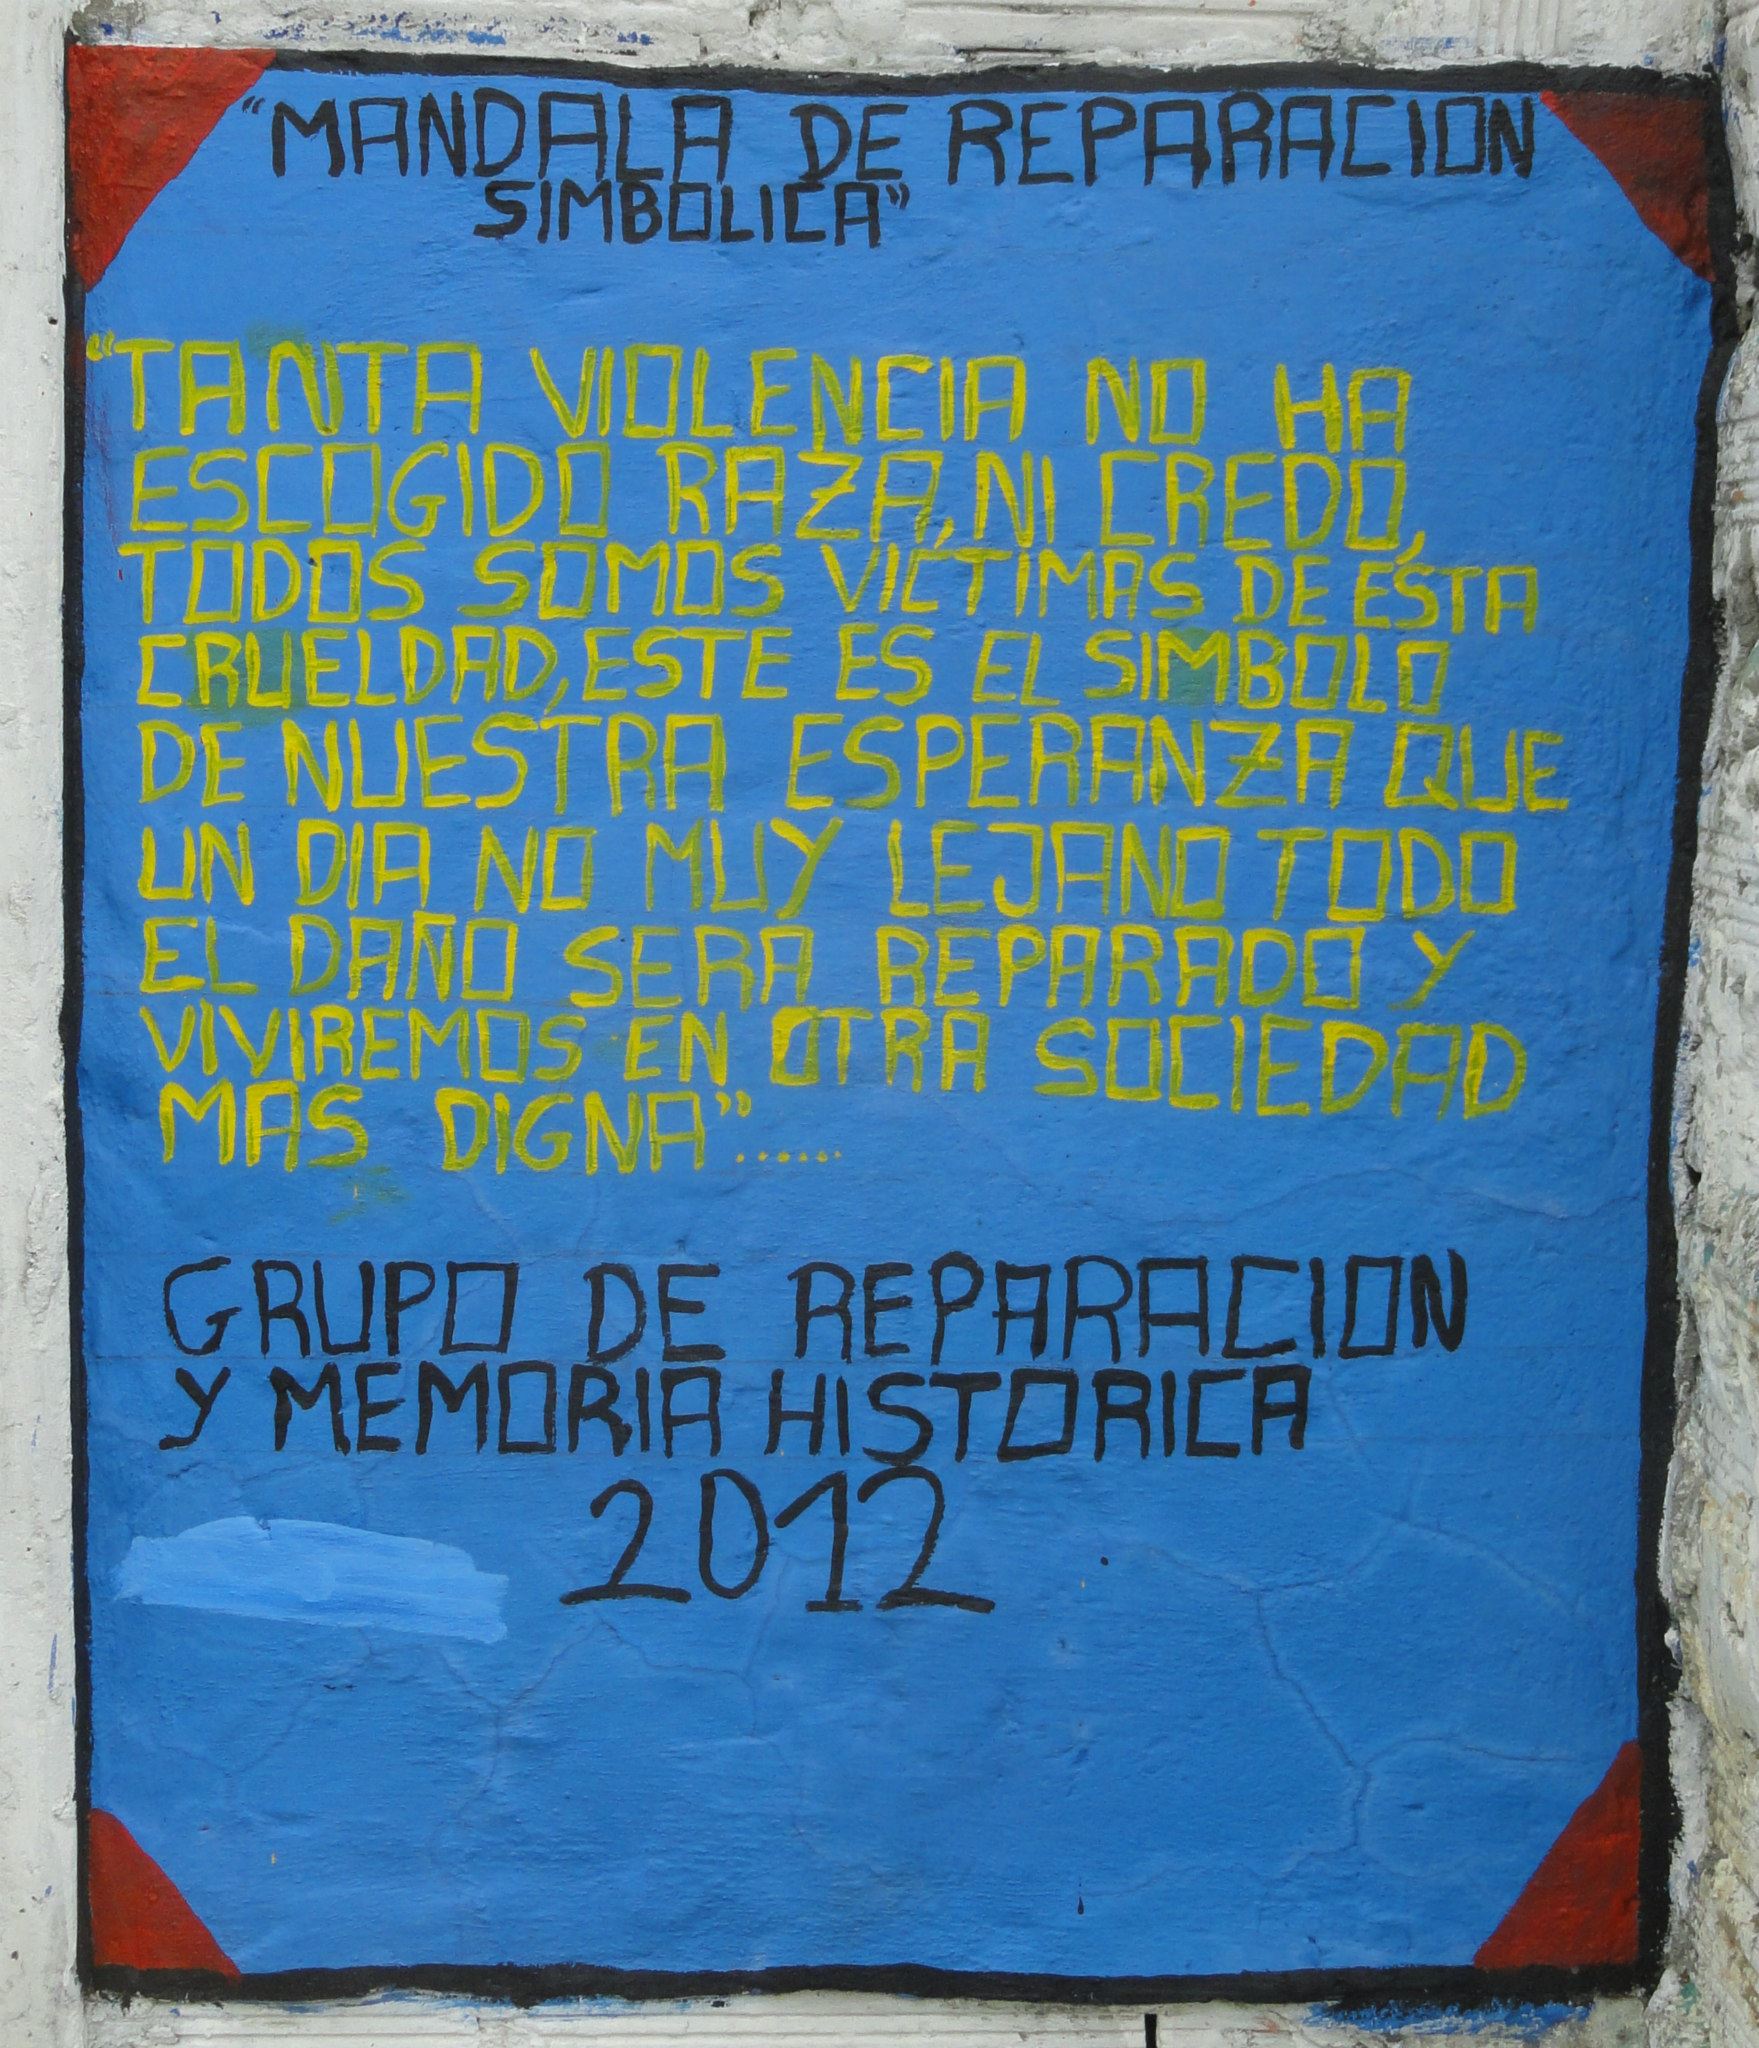 "MANDALA DE REPARACION
SIMBOLICA"
"TANTA VIOLENCIA NO HA
ESCOGIDO RAZA, NI CREDO,
TODOS SOMOS VICTIMAS DE ESTA
CRUELDAD, ESTE ES EL SIMBOLO
DE NUESTRA ESPERANZA QUE
UN DIA NO MUY LEJANO TODO
EL DAÑO SERA REPARADO Y
VIVIREMOS EN OTRA SOCIEDAD
MAS DIGNA"......
GRUPO DE REPARACION
Y MEMORIA HISTORICA
2012